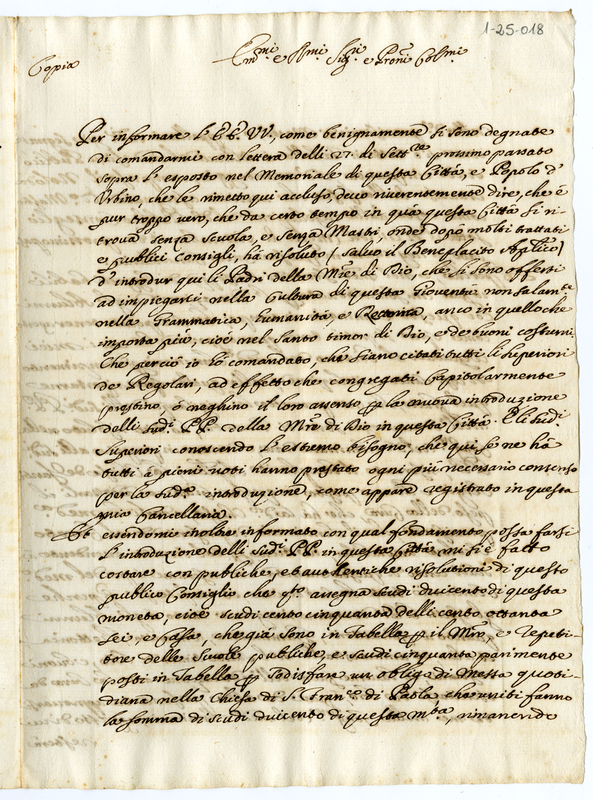 1-25-018
Copia
Em.mi e R.mi Sig.ri e Proni Col.mi
Per informare l'EE. VV., come benignamente si sono degnate
di comandarmi con lettera delli 27. di Sett.re prossimo passato
sopra l'esposto nel Memoriale di questa Città, e Popolo d'
Urbino, che le rimetto qui accluso, devo riverentemente dire, che è
pur troppo vero, che da certo tempo in quà questa Città si ri-
trova senza scuola, e senza Mastri, onde dopò molti trattati
e publici Consigli, hà risoluto (salvo il Beneplacito Ap.lico)
d'introdur qui li Padri della M.re di Dio, che si sono offerti
ad impiegarsi nella Cultura di questa Gioventù non solam.te
nella Grammatica, humanità, e Rettorica, anco in quello che
importa più, cioè nel santo timor di Dio, e de buoni costumi
Che perciò io hò comandato, che siano citati tutti li superiori
de Regolari, ad effetto che congregati Capitolarmente
prestino, ò neghino il loro assenso p la nuova introduzione
delli sud.i PP. della M.re di Dio in questa Città. E li sud.i
Superiori conoscendo l'estremo bisogno, che qui se ne hà
tutti à pieni voti hanno prestato ogni più necessario consenso
per la sud.a introduzione, come appare registrato in questa
mia Cancellaria.
Et essendomi inoltre informato con qual fondamento possa farsi
l'introduzione delli sud.i PP. in questa Città, mi si è fatto
costare con publiche, et autentiche risolutioni di questo
publico Consiglio che q.sto assegna scudi duicento di questa
moneta, cioè scudi cento cinquanta delli cento ottanta
sei, e Casa, che già sono in Tabella p il M.ro, e Repeti-
tore delle scuole publiche, e scudi cinquanta parimente
posti in Tabella p sodisfare un obligo di Messa quoti-
diana nella Chiesa di S. Fran.co di Paola che uniti fanno
la somma di scudi duicento di questa m.ta, rimanendo